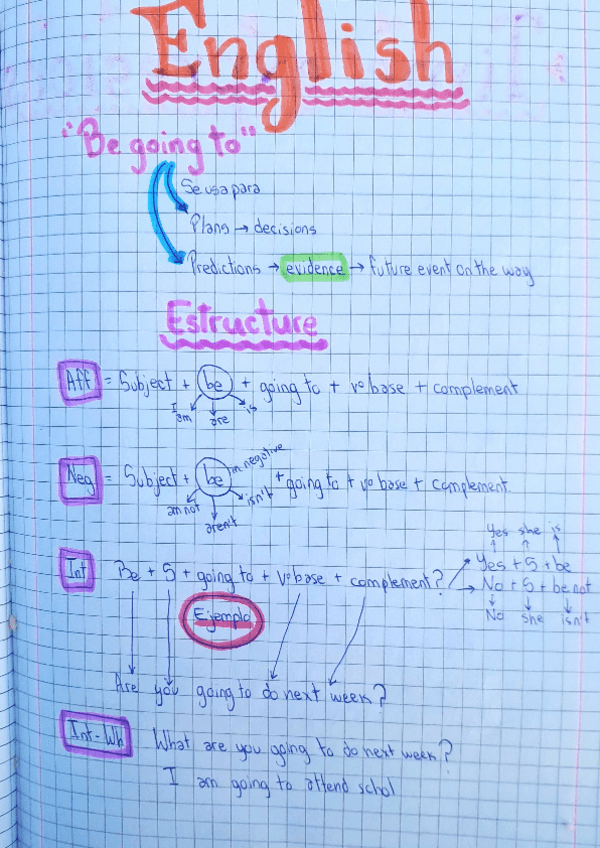 English
"Be going to"
Se usa para
Plans → decisions
Predictions → evidence → future event on the way
Estructure
Aff = Subject + be + going to + vo base + complement
I am are is
Neg = Subject + be in negative + going to + vo base + complement.
am not aren't isn't
Yes she is
Int Be + S + going to + vo base + complement? Yes + S + be
No + S + be not
Ejemplo
No she isn't
Are you going to do next week?
Int - Wh What are you going to do next week?
I am going to attend schol